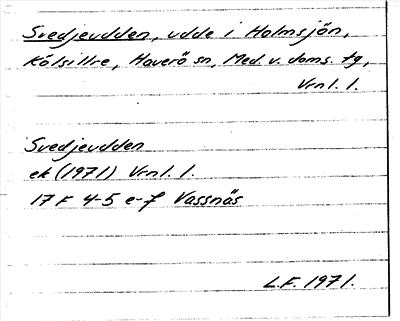 Svedjeudden, udde i Holmsjön,
Kölsillre, Haverö sn, Med. v. doms. tg,
Vrnl. l.
Svedjeudden
ek (1971) Vrnl. l.
17 F 4-5 e-f Vassnäs
L.F. 1971.